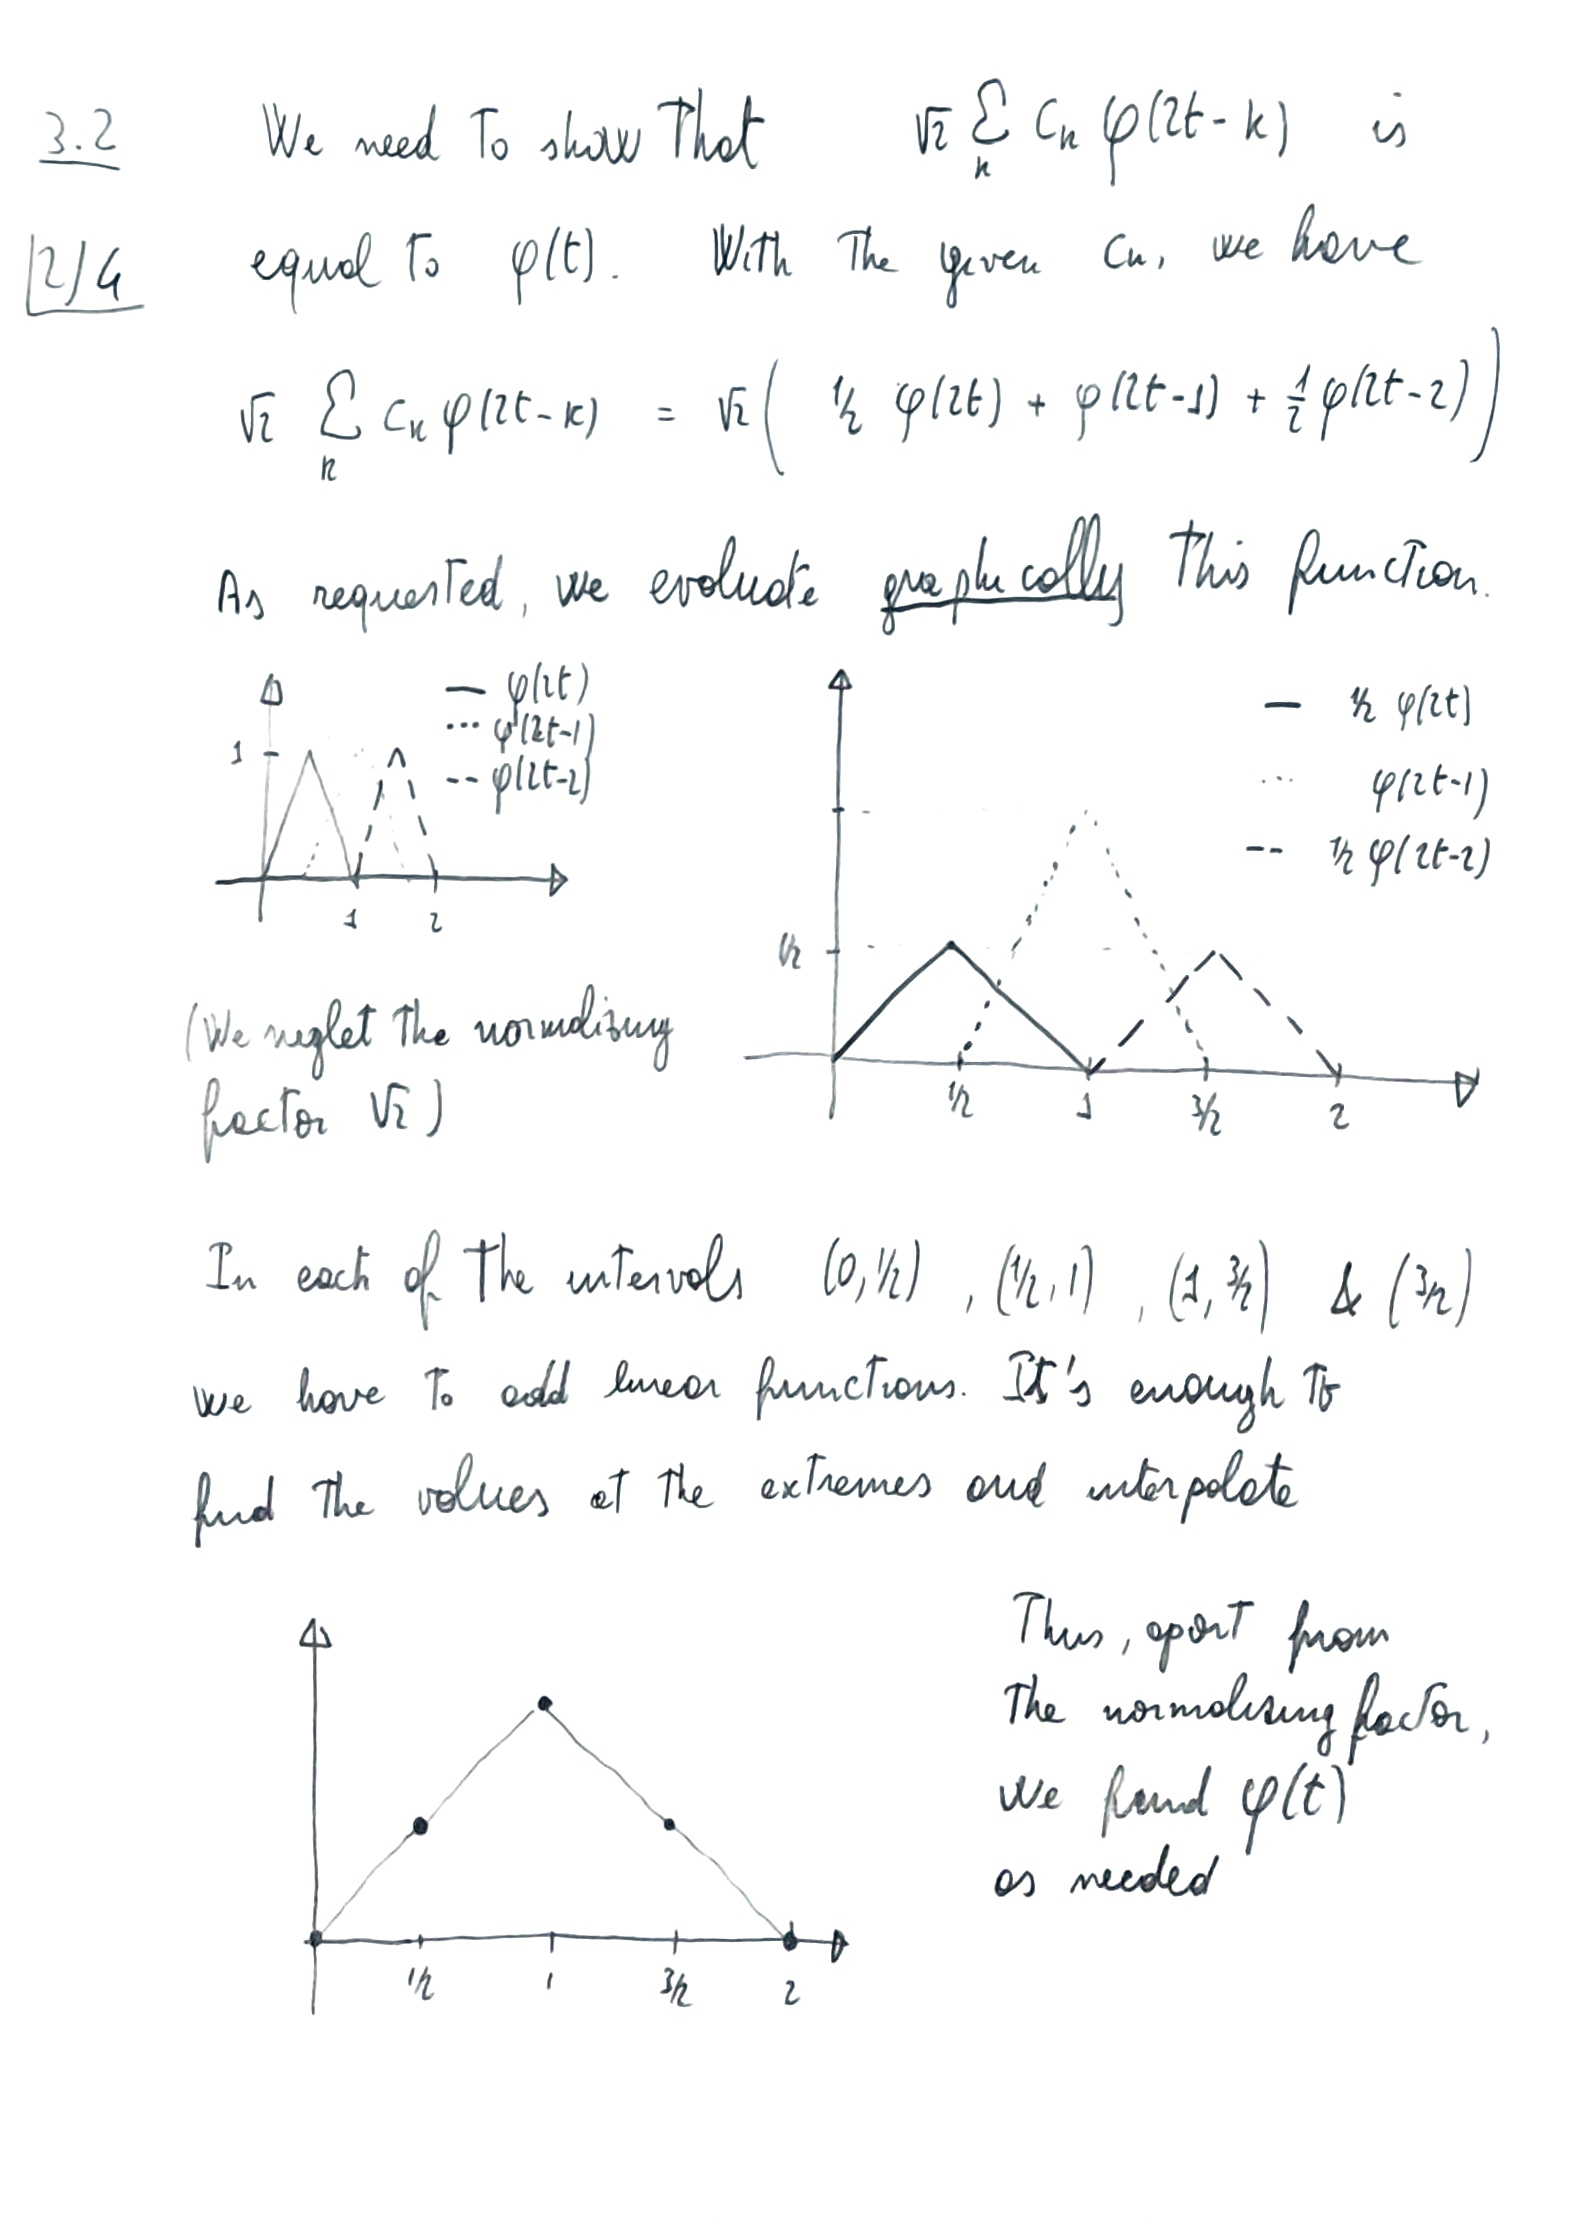 3.2 We need to show that √2 Σ_k c_k φ(2t-k) is
2/4 equal to φ(t). With the given c_k, we have
√2 Σ_k c_k φ(2t-k) = √2 ( 1/2 φ(2t) + φ(2t-1) + 1/2 φ(2t-2) )
As requested, we evaluate graphically this function.
— φ(2t)
... φ(2t-1)
-- φ(2t-2)
1
1 2
— 1/2 φ(2t)
... φ(2t-1)
-- 1/2 φ(2t-2)
1/2
1/2 1 3/2 2
(We neglet the normalizing
factor √2)
In each of the intervals (0,1/2), (1/2,1), (1,3/2) & (3/2)
we have to add linear functions. It's enough to
find the values at the extremes and interpolate
1/2 1 3/2 2
Thus, apart from
the normalising factor,
we find φ(t)
as needed